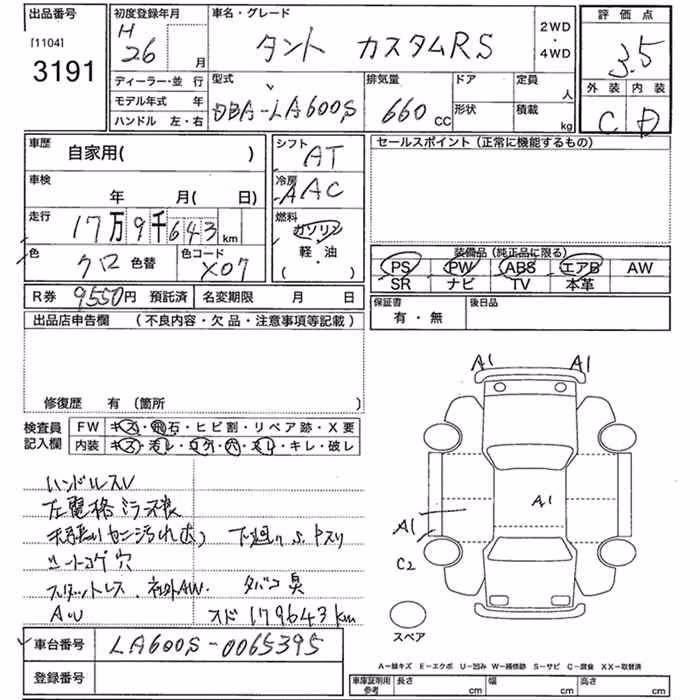 出品番号 初度登録年月 車名・グレード 2WD・4WD 評価点
[1104] H26 月 タント カスタムRS 3.5
3191
ディーラー・並 行 型式 排気量 ドア 定員 人 外装 内装
モデル年式 年 DBA-LA600S 660 CC 形状 積載 kg C D
ハンドル 左・右
車歴 自家用( ) シフト AT セールスポイント(正常に機能するもの)
車検 年 月( 日) 冷房 AAC
走行 17万9千643km 燃料 ガソリン
色 クロ 色替 色コード X07 軽・油
( ・ )
装備品(純正品に限る)
PS PW ABS エアB AW
SR ナビ TV 本革
R券 9550円 預託済 名変期限 月 日 保証書 有・無 後日品
出品店申告欄 (不良内容・欠品・注意事項等記載)
修復歴 有 (箇所 )
検査員 FW キズ・飛石・ヒビ割・リペア跡・X要
記入欄 内装 キズ・汚レ・コゲ・穴・スレ・キレ・破レ
A1 A1
A1
A1
C2
ハンドルスレ
左電格ミラー不良
下廻りS
シートコゲ穴
スタットレス 社外AW. タバコ臭
AW スド179643km
スペア
車台番号 LA600S-0065395
登録番号
A-線キズ E-エクボ U-凹み W-補修跡 S-サビ C-腐食 XX-取替済
車庫証明用参考 長さ cm 幅 cm 高さ cm